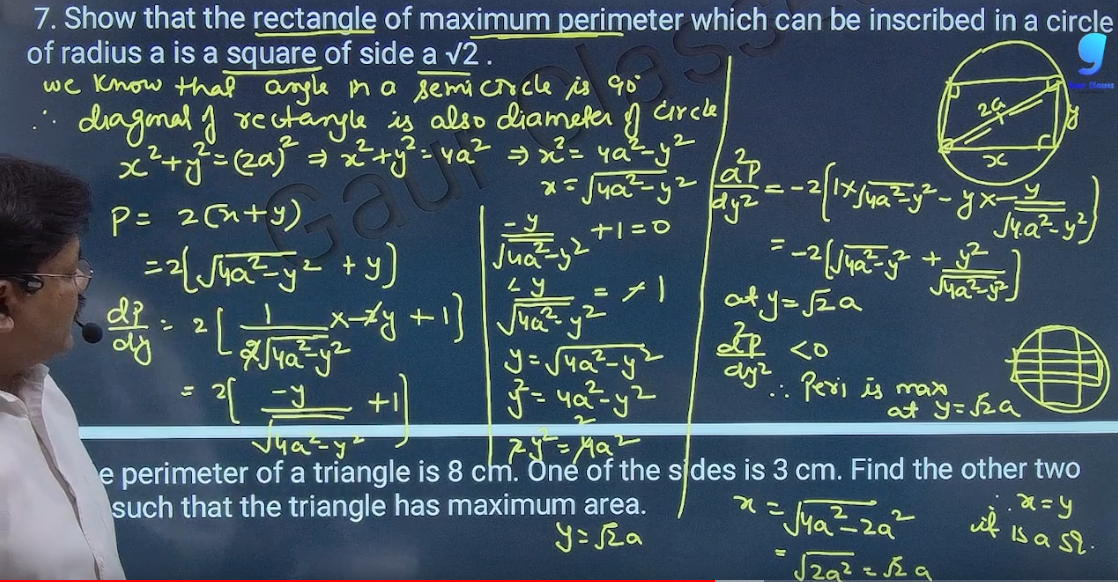 7. Show that the rectangle of maximum perimeter which can be inscribed in a circle
of radius a is a square of side a √2 .
we know that angle in a semi circle is 90°
∴ diagonal of rectangle is also diameter of circle
x² + y² = (2a)² ⇒ x² + y² = 4a² ⇒ x² = 4a² - y²
x = √(4a² - y²)
P = 2(x + y)
= 2[√(4a² - y²) + y]
dP/dy = 2[1/(2√(4a² - y²)) × -2y + 1]
= 2[-y/√(4a² - y²) + 1]
-y/√(4a² - y²) + 1 = 0
-y/√(4a² - y²) = -1
y = √(4a² - y²)
y² = 4a² - y²
2y² = 4a²
y = √2 a
d²P/dy² = -2[1 × √(4a² - y²) - y × -y/√(4a² - y²)]
= -2[√(4a² - y²) + y²/√(4a² - y²)]
at y = √2 a
d²P/dy² < 0
∴ Peri is max
at y = √2 a
x = √(4a² - 2a²)
= √(2a²) = √2 a
∴ x = y
it is a sq.
2a
y
x
e perimeter of a triangle is 8 cm. One of the sides is 3 cm. Find the other two
such that the triangle has maximum area.
Gaur Classes